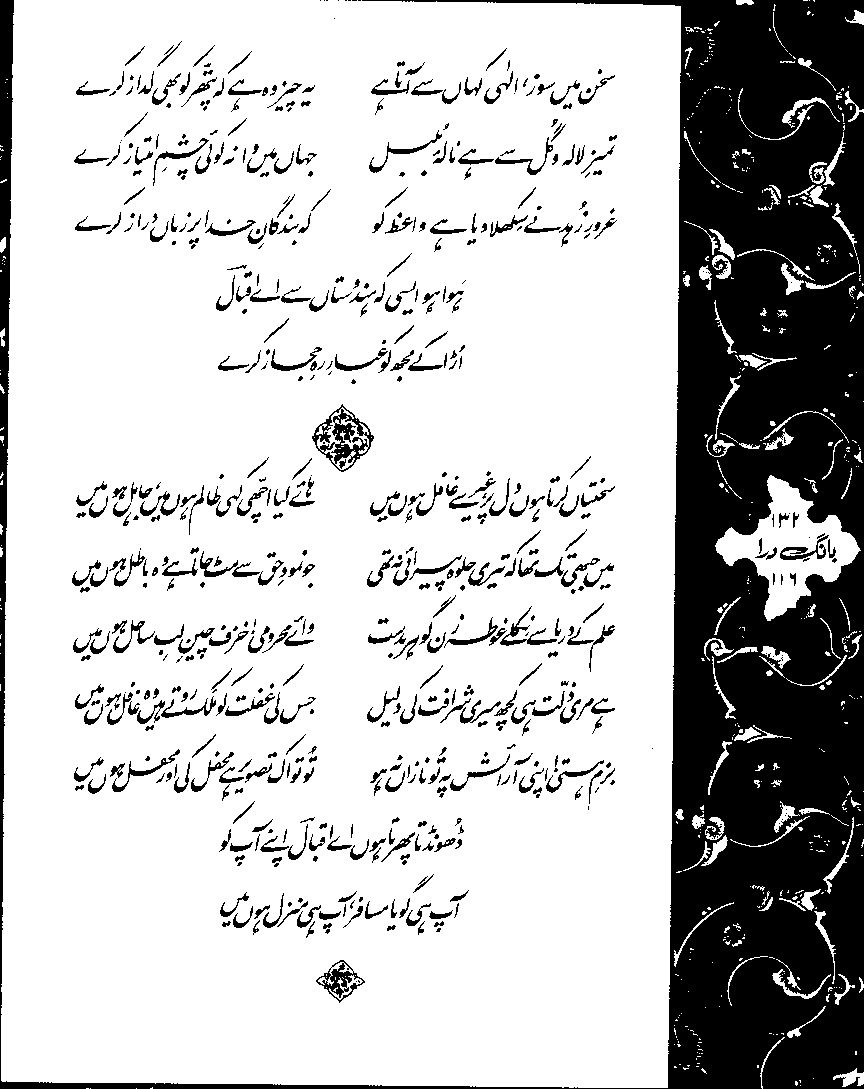 سخن میں سوز، الٰہی کہاں سے آتا ہے یہ چیز وہ ہے کہ پتھر کو بھی گداز کرے
تمیزِ لالہ و گُل سے ہے نالۂ بُلبل جہاں میں وا نہ کوئی چشمِ امتیاز کرے
غرورِ زُہد نے سِکھلا دیا ہے واعظ کو کہ بندگانِ خدا پر زباں دراز کرے
ہوا ہو ایسی کہ ہندوستاں سے اے اقبالؔ
اُڑا کے مجھ کو غبارِ رہِ حجاز کرے
سختیاں کرتا ہوں دل پر، غیر سے غافل ہوں میں ہائے کیا اچھی کہی ظالم ہوں میں، جاہل ہوں میں
میں جبھی تک تھا کہ تیری جلوہ پیرائی نہ تھی جو نمودِ حق سے مٹ جاتا ہے وہ باطل ہوں میں
علم کے دریا سے نِکلے غوطہ زن گوہر بدست وائے محرومی! خزف چینِ لبِ ساحل ہوں میں
ہے مری ذلّت ہی کچھ میری شرافت کی دلیل جس کی غفلت کو مَلک روتے ہیں وہ غافل ہوں میں
بزمِ ہستی! اپنی آرائش پہ تُو نازاں نہ ہو تُو تو اک تصویر ہے محفل کی اور محفل ہوں میں
ڈھُونڈتا پھرتا ہوں اے اقبالؔ اپنے آپ کو
آپ ہی گویا مسافر، آپ ہی منزل ہوں میں
۱۳۲
بانگِ درا
۱۱۶